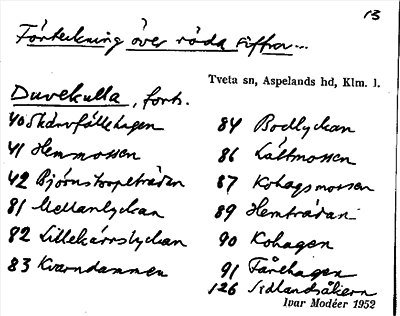 13
Förteckning över röda siffror...
Tveta sn, Aspelands hd, Klm. l.
Duvekulla, forts.
40 Skärvfällehagen
41 Hemmossen
42 Björnstorpeträdan
81 Mellanlyckan
82 Lillekärrslyckan
83 Kvarndammen
84 Bodlyckan
86 Lättmossen
87 Kohagsmossen
89 Hemträdan
90 Kohagen
91 Fårehagen
126 Sidlandsåkern
Ivar Modéer 1952